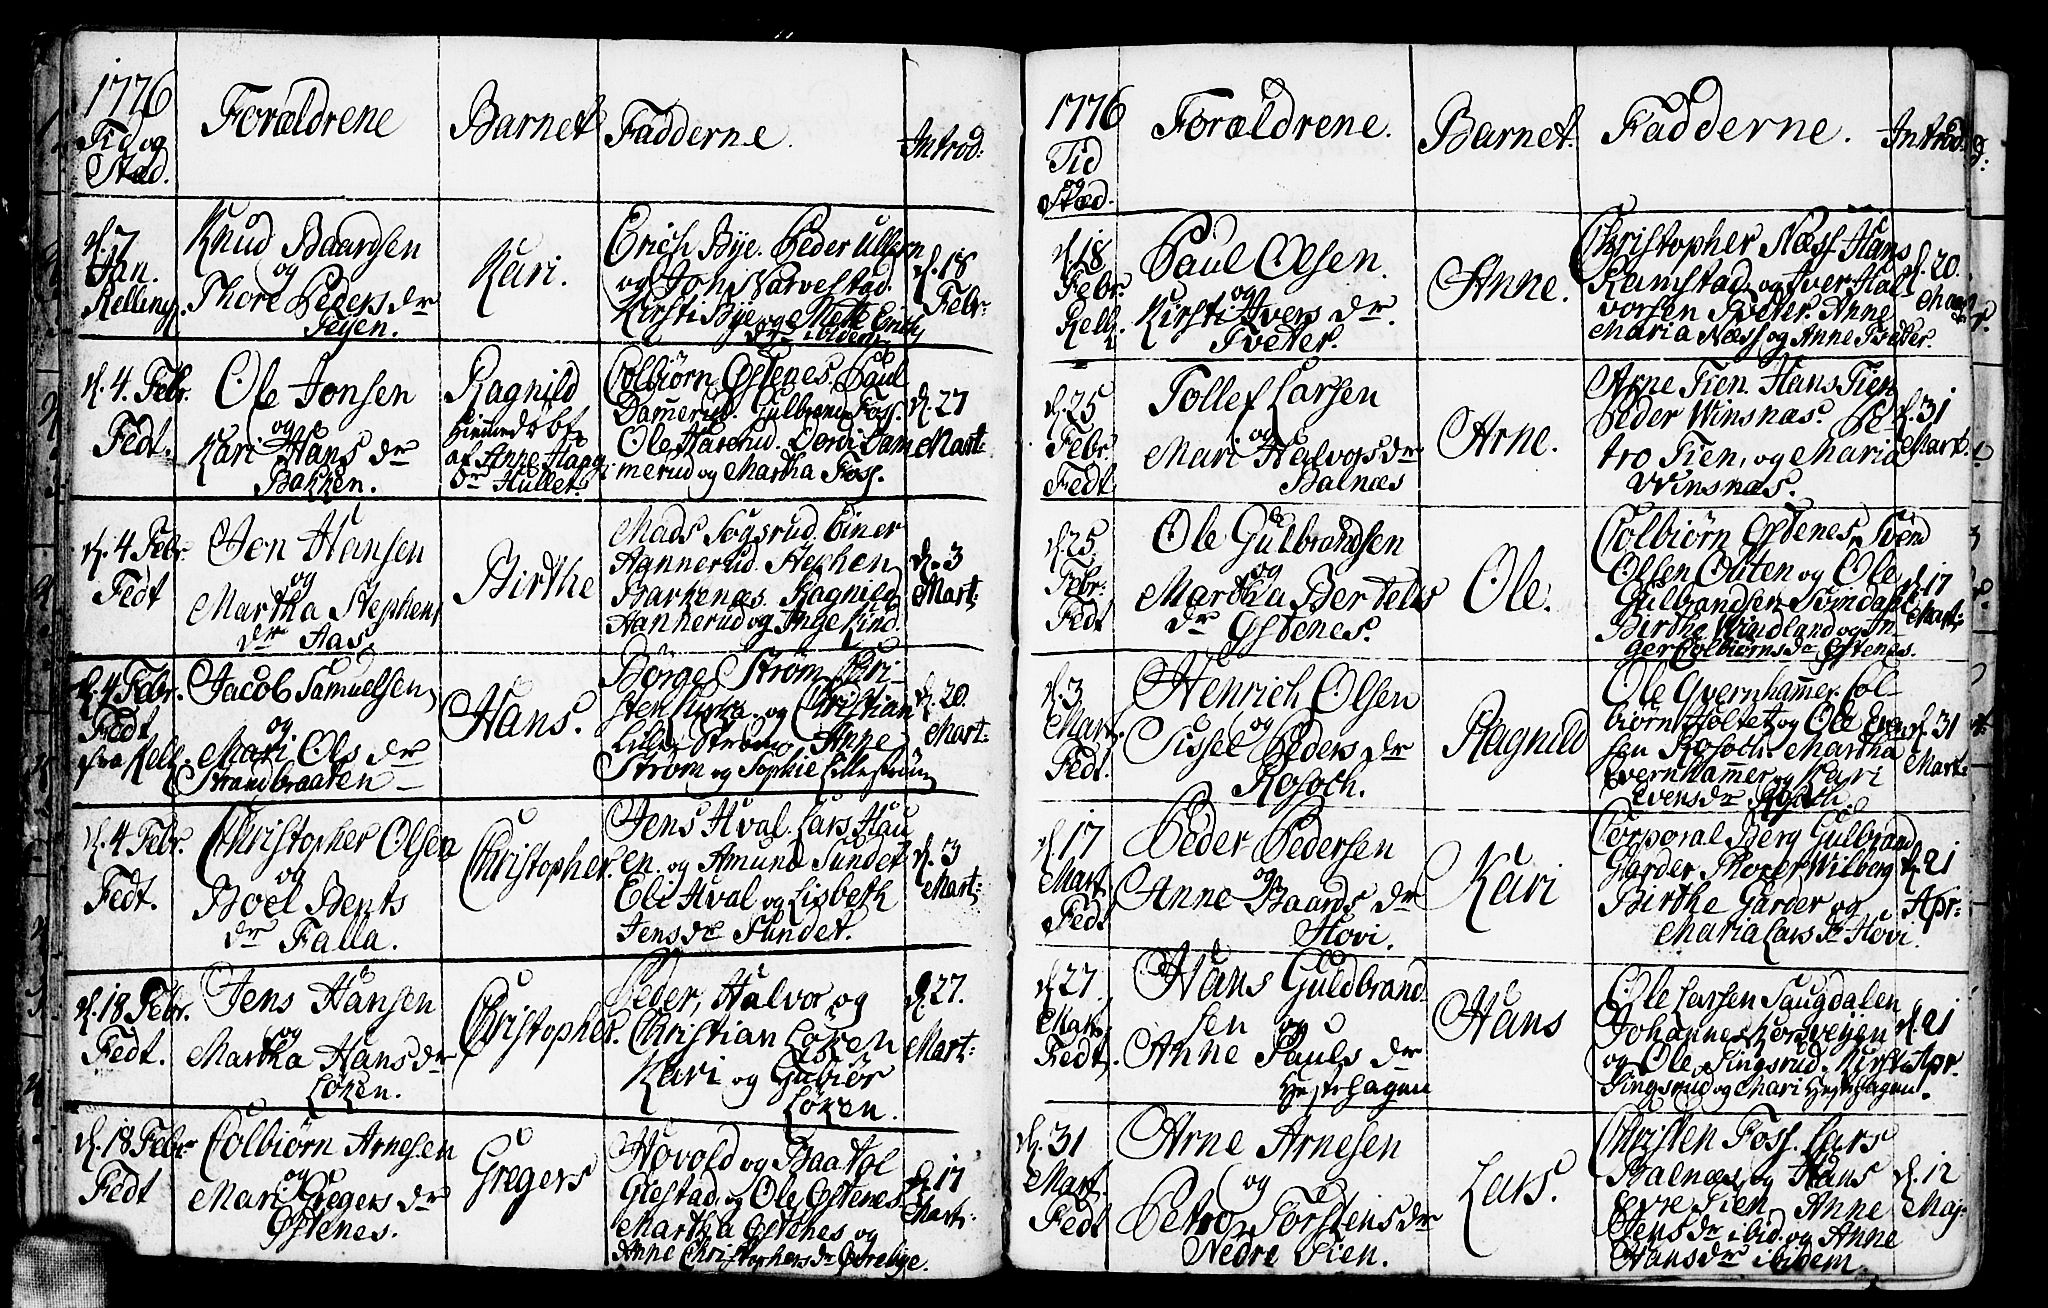 1776
Tid og
Stæd.
Forældrene
Barnet
Fadderne.
Introd:
d. 7
Jan.
Relling.
Knud Baardsen
og
Thore Peders dr
Feyen.
Kari.
Erich Bye. Peder Ullern
og John Varvestad.
Kirsti Bye og Mette Erichs
dr ibidem
d. 18
Febr:
d. 4. Febr.
Fedt.
Ole Jonsen
og
Kari Hans dr
Bakken.
Ragnild
Hiemedøbt
af Anne Hans
dr Hullet.
Colbiørn Østenes. Paul
Dammerud. Gulbrand Foss.
Ole Haserud. Dorthi Dam
merud og Martha Foss.
d. 27
Mart:
d. 4 Febr.
Fedt
Jon Hansen
og
Martha Stephens
dr Aas
Birthe
Mads Sogsrud. Einer
Hannerud. Stephen
Barkenæs. Ragnild
Hannerud og Inge Kind.
d. 3
Mart:
d. 4 Febr.
Fedt
fra Rell.
Jacob Samuelsen
og
Mari Ols dr
Strandbraaten
Hans.
Børge Strøm. Chri-
sten og Christian
Lille Strøm. Anne
Strøm og Sophie Lillestrøm
d. 20.
Mart:
d. 4 Febr.
Fedt.
Christopher Olsen
og
Boel Bents
dr Falla.
Christopher.
Jens Hval. Lars Hau
en. og Amund Sundet
Eli Hval og Lisbeth
Jens dr Sundet.
d. 3
Mart:
d. 18 Febr.
Fedt.
Jens Hansen
og
Martha Hans dr
Løken.
Christopher.
Peder, Halvor og
Christian Løken
Kari og Gubiør
Løken.
d. 27.
Mart:
d. 18 Febr
Fedt
Colbiørn Arnesen
og
Mari Gregers dr
Østenes.
Gregers
Hovold og Baa
Giestad, og Ole Østenes.
Martha Østenes og
Anne Christophers dr Øvrebye.
d. 17
Mart:
1776
Tid
og
Stæd.
Forældrene.
Barnet.
Fadderne.
Introd:
d. 18
Febr.
Rell.
Paul Olsen.
og
Kirsti Ivers dr.
Tveter.
Anne.
Christopher Næss Hans
Ramstad, og Iver Hal
vorsen Tveter. Anne
Maria Næss og Anne Tveter.
d. 20.
Mart
d. 25
Febr.
Fedt
Tollef Larsen
og
Mari Halvors dr
Balnæs
Arne.
Arne Tien. Hans Tien
Peder Winsnæs. Pe-
tro Tien, og Maria
Winsnæs.
d. 31
Mart.
d. 25
Febr:
Fedt
Ole Gulbrandsen
og
Martha Bertels
dr
Østenes.
Ole.
Colbiørn Østenes, Svend
Olsen Oliten og Ole
Gulbrandsen Somdahl
Birthe Windland og In-
ger Colbiørns dr Østenes.
d. 17
Mart:
d. 3
Mart.
Fedt.
Henrich Olsen
og
Sissel Peders dr
Rosoth.
Ragnild
Ole Qvernhammer. Col-
biørn Holtet og Ole Even
sen Rosoth. Martha
Qvernhammer og Kari
Evens dr Rosoth.
d. 31
Mart:
d. 17
Mart.
Fedt
Peder Pedersen
og
Anne Baards dr
Hovi.
Kari
Corporal Berg Gulbrand
Garder Thorer Wilberg
Birthe Garder og
Maria Lars dr Hovi.
d. 21
Apr:
d. 27.
Mart
Fedt.
Hans Guldbrand
sen og
Anne Pauls dr
Hestehagen
Hans
Ole Larsen Saugdalen
Johannes Korsveyen
og Ole Singsrud. Kirsti
Singsrud og Mari Hestehagen.
d. 21
Apr.
d. 31
Mart.
Fedt
Arne Arnesen
og
Petro Torstens dr
Nedre Tien.
Lars.
Christen Foss. Lars
Balnæs, og Hans
Evre Tien, Anne
Jens dr ibid. og Anne
Hans dr ibidem.
d. 12
Maj.